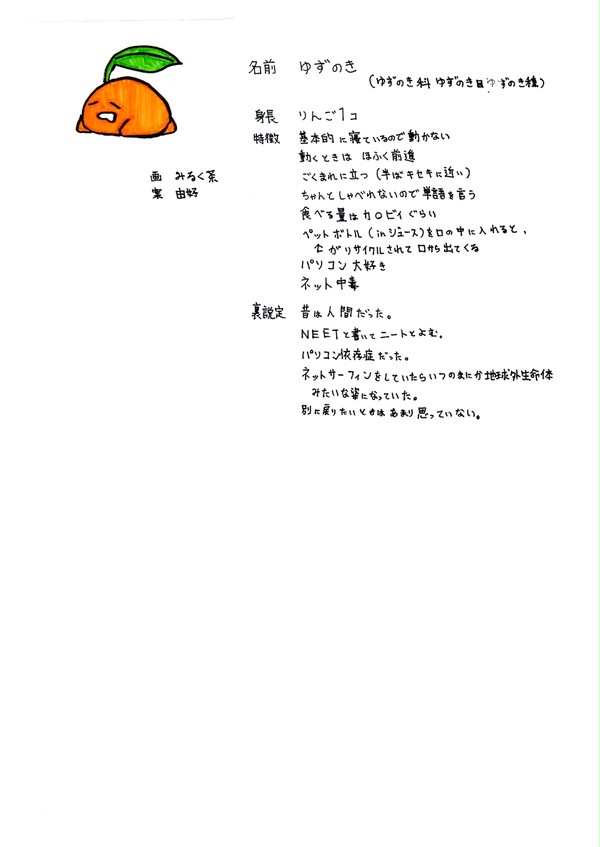 名前 ゆずのき
(ゆずのき科 ゆずのき目 ゆずのき種)
身長 りんご1コ
特徴 基本的に寝ているので動かない
動くときは ほふく前進
画 みるく茶
ごくまれに立つ (半ばキセキに近い)
案 由好
ちゃんとしゃべれないので単語を言う
食べる量はカ○ビィぐらい
ペットボトル (inジュース)を口の中に入れると、
←がリサイクルされて口から出てくる
パソコン大好き
ネット中毒
裏説定 昔は人間だった。
NEETと書いてニートとよむ。
パソコン依存症だった。
ネットサーフィンをしていたらいつのまにか地球外生命体
みたいな姿になっていた。
別に戻りたいとかはあまり思っていない。